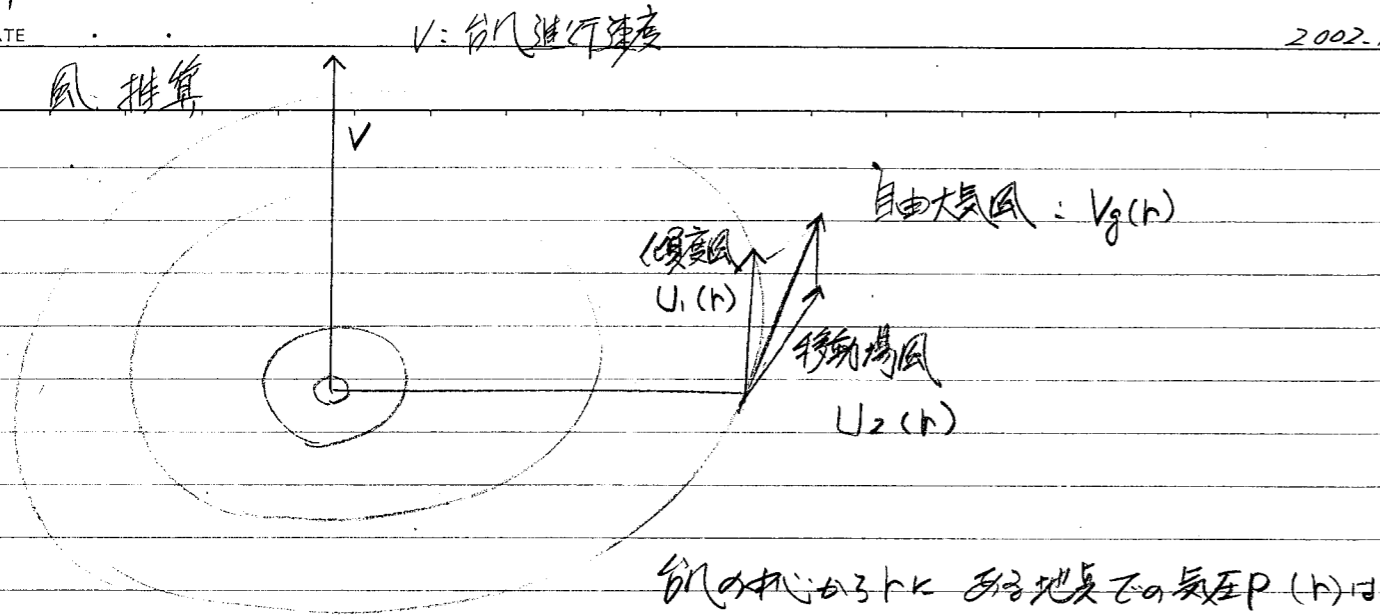 TE . .
V：台風進行速度
2002.
風 推算
V
自由大気風：Vg(r)
傾度風
U1(r)
移動場風
U2(r)
台風の中心からrに ある地点での気圧P(r)は